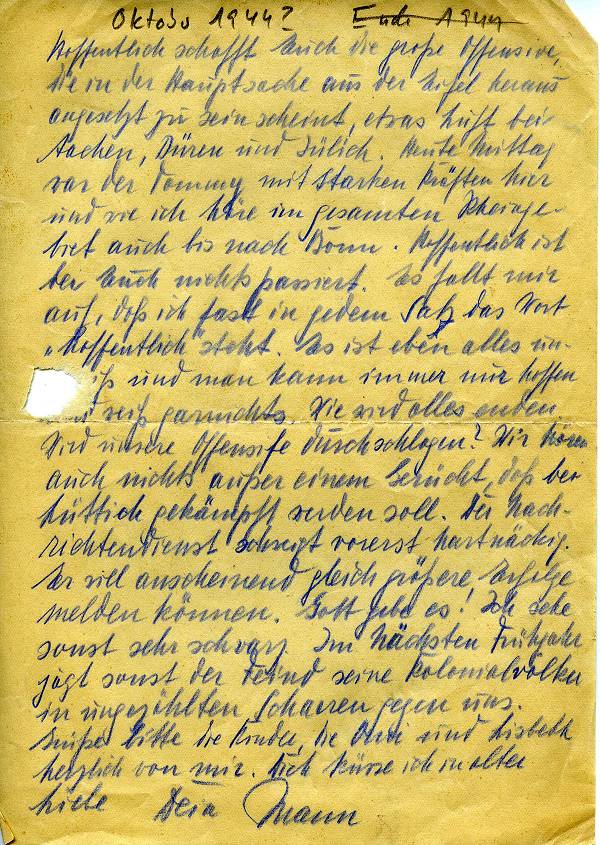 Oktober 1944? Ende 1944
Hoffentlich schafft Euch die große Offensive,
die in der Hauptsache aus der Eifel heraus
angesetzt zu sein scheint, etwas Luft bei
Aachen, Düren und Jülich. Heute Mittag
war der Tommy mit starken Kräften hier
und wie ich höre im gesamten Rheinge-
biet auch bis nach Bonn. Hoffentlich ist
bei Euch nichts passiert. Es fällt mir
auf, daß ich fast in jedem Satz das Wort
„Hoffentlich" steht. Es ist eben alles un-
iß und man kann immer nur hoffen
nd weiß garnichts. Wie wird alles enden.
Wird unsere Offensife durchschlagen? Wir hören
auch nichts außer einem Gerücht, daß bei
Lüttich gekämpft werden soll. Der Nach-
richtendienst schweigt vorerst hartnäckig.
Er will anscheinend gleich größere Erfolge
melden können. Gott gebe es! Ich sehe
sonst sehr schwarz. Im nächsten Frühjahr
jagt sonst der Feind seine Kolonialvölker
in ungezählten Scharen gegen uns.
Grüße bitte die Kinder, die Omi und Lisbeth
herzlich von mir. Dich küsse ich in alter
Liebe Dein Mann